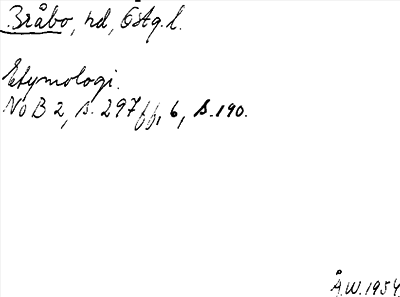 Bråbo, hd, Östg.l.
Etymologi.
NoB 2, s. 297ff, 6, s. 190.
Å.W. 1954